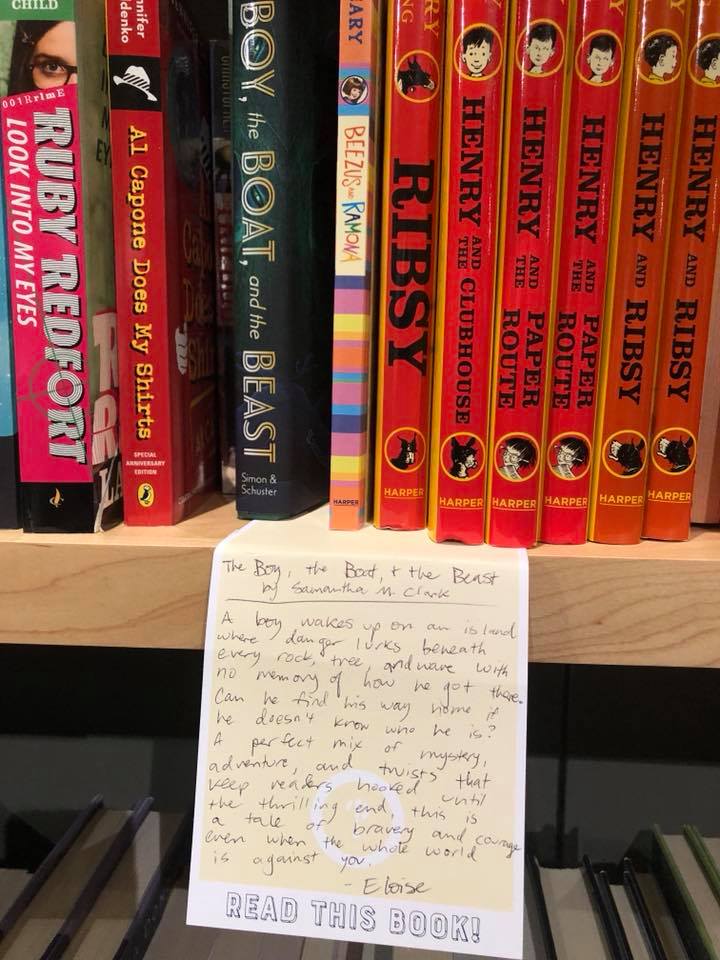 CHILD
RUBY REDFORT
LOOK INTO MY EYES
Al Capone Does My Shirts
SPECIAL
ANNIVERSARY
EDITION
BOY, the BOAT, and the BEAST
Simon &
Schuster
ARY
BEEZUS AND RAMONA
HARPER
RIBSY
HARPER
HENRY AND THE CLUBHOUSE
HARPER
HENRY AND THE PAPER ROUTE
HARPER
HENRY AND THE PAPER ROUTE
HARPER
HENRY AND RIBSY
HARPER
HENRY AND RIBSY
HARPER
The Boy, the Boat, + the Beast
by Samantha M. Clark
A boy wakes up on an island
where danger lurks beneath
every rock, tree, and wave with
no memory of how he got there.
Can he find his way home if
he doesn't know who he is?
A perfect mix of mystery,
adventure, and twists that
keep readers hooked until
the thrilling end, this is
a tale of bravery and courage
even when the whole world
is against you.
- Eloise
READ THIS BOOK!